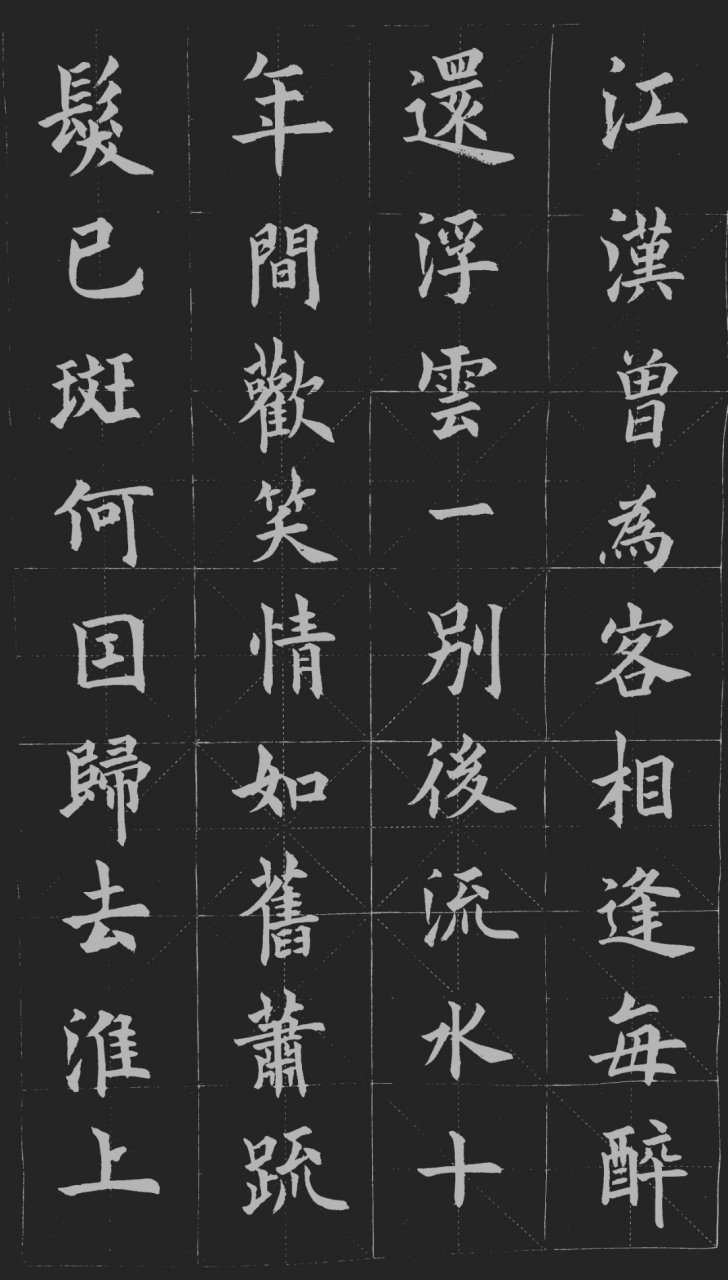 江漢曽為客相逢每醉
還浮雲一别後流水十
年間歡笑情如舊蕭疏
髮已斑何囯歸去淮上